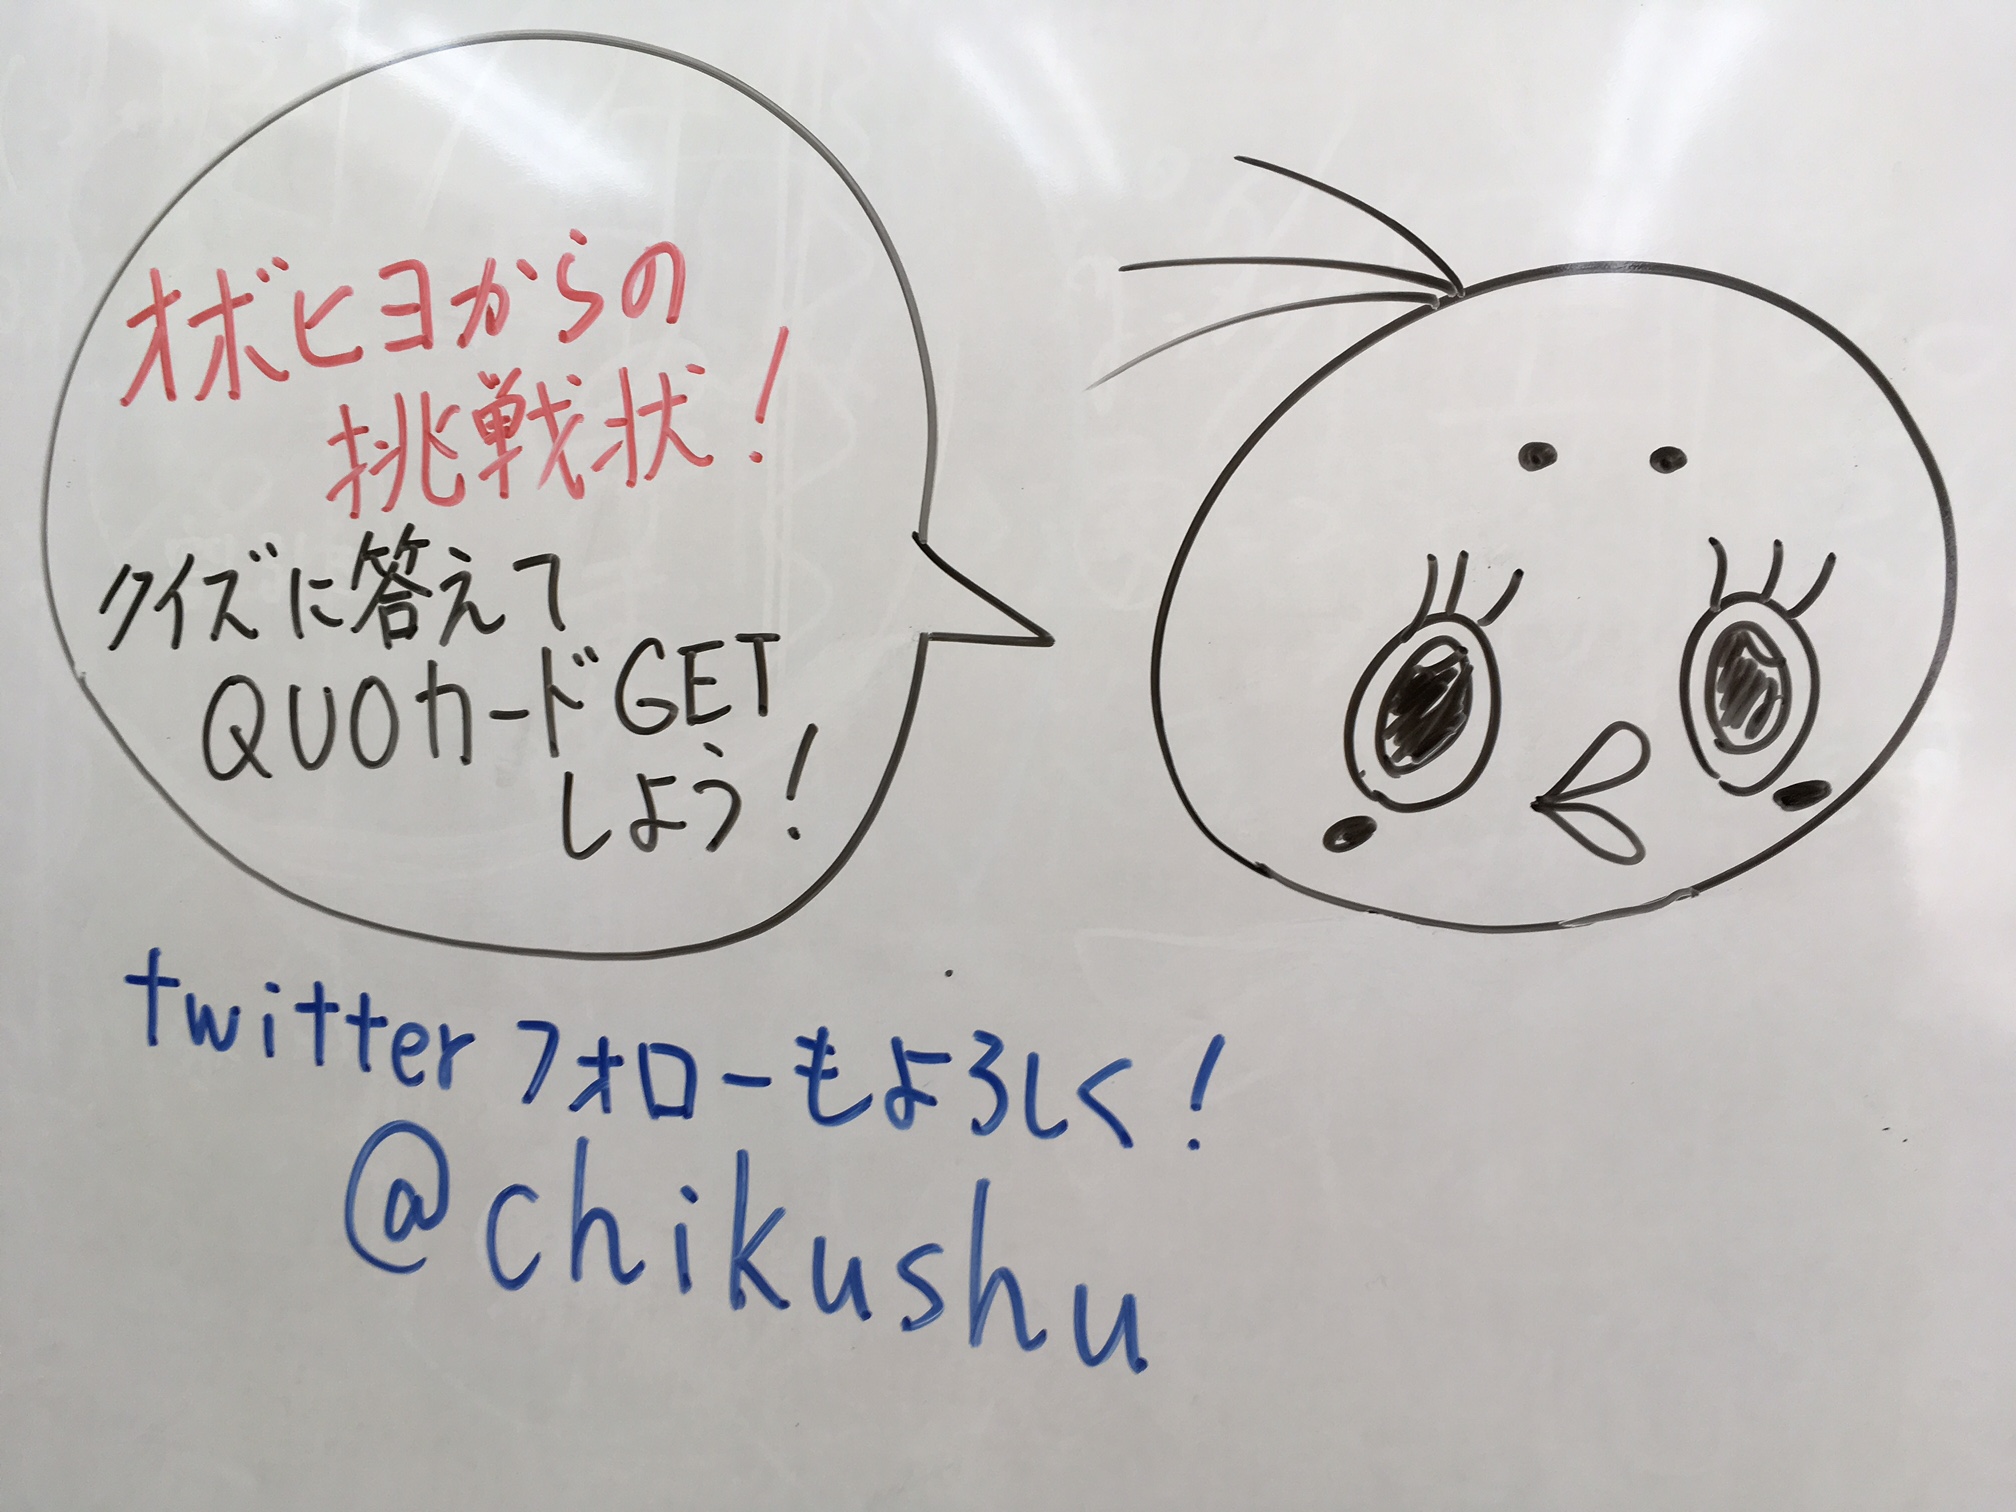 オボヒヨからの
挑戦状！
クイズに答えて
QUOカードGET
しよう！
twitterフォローもよろしく！
@chikushu